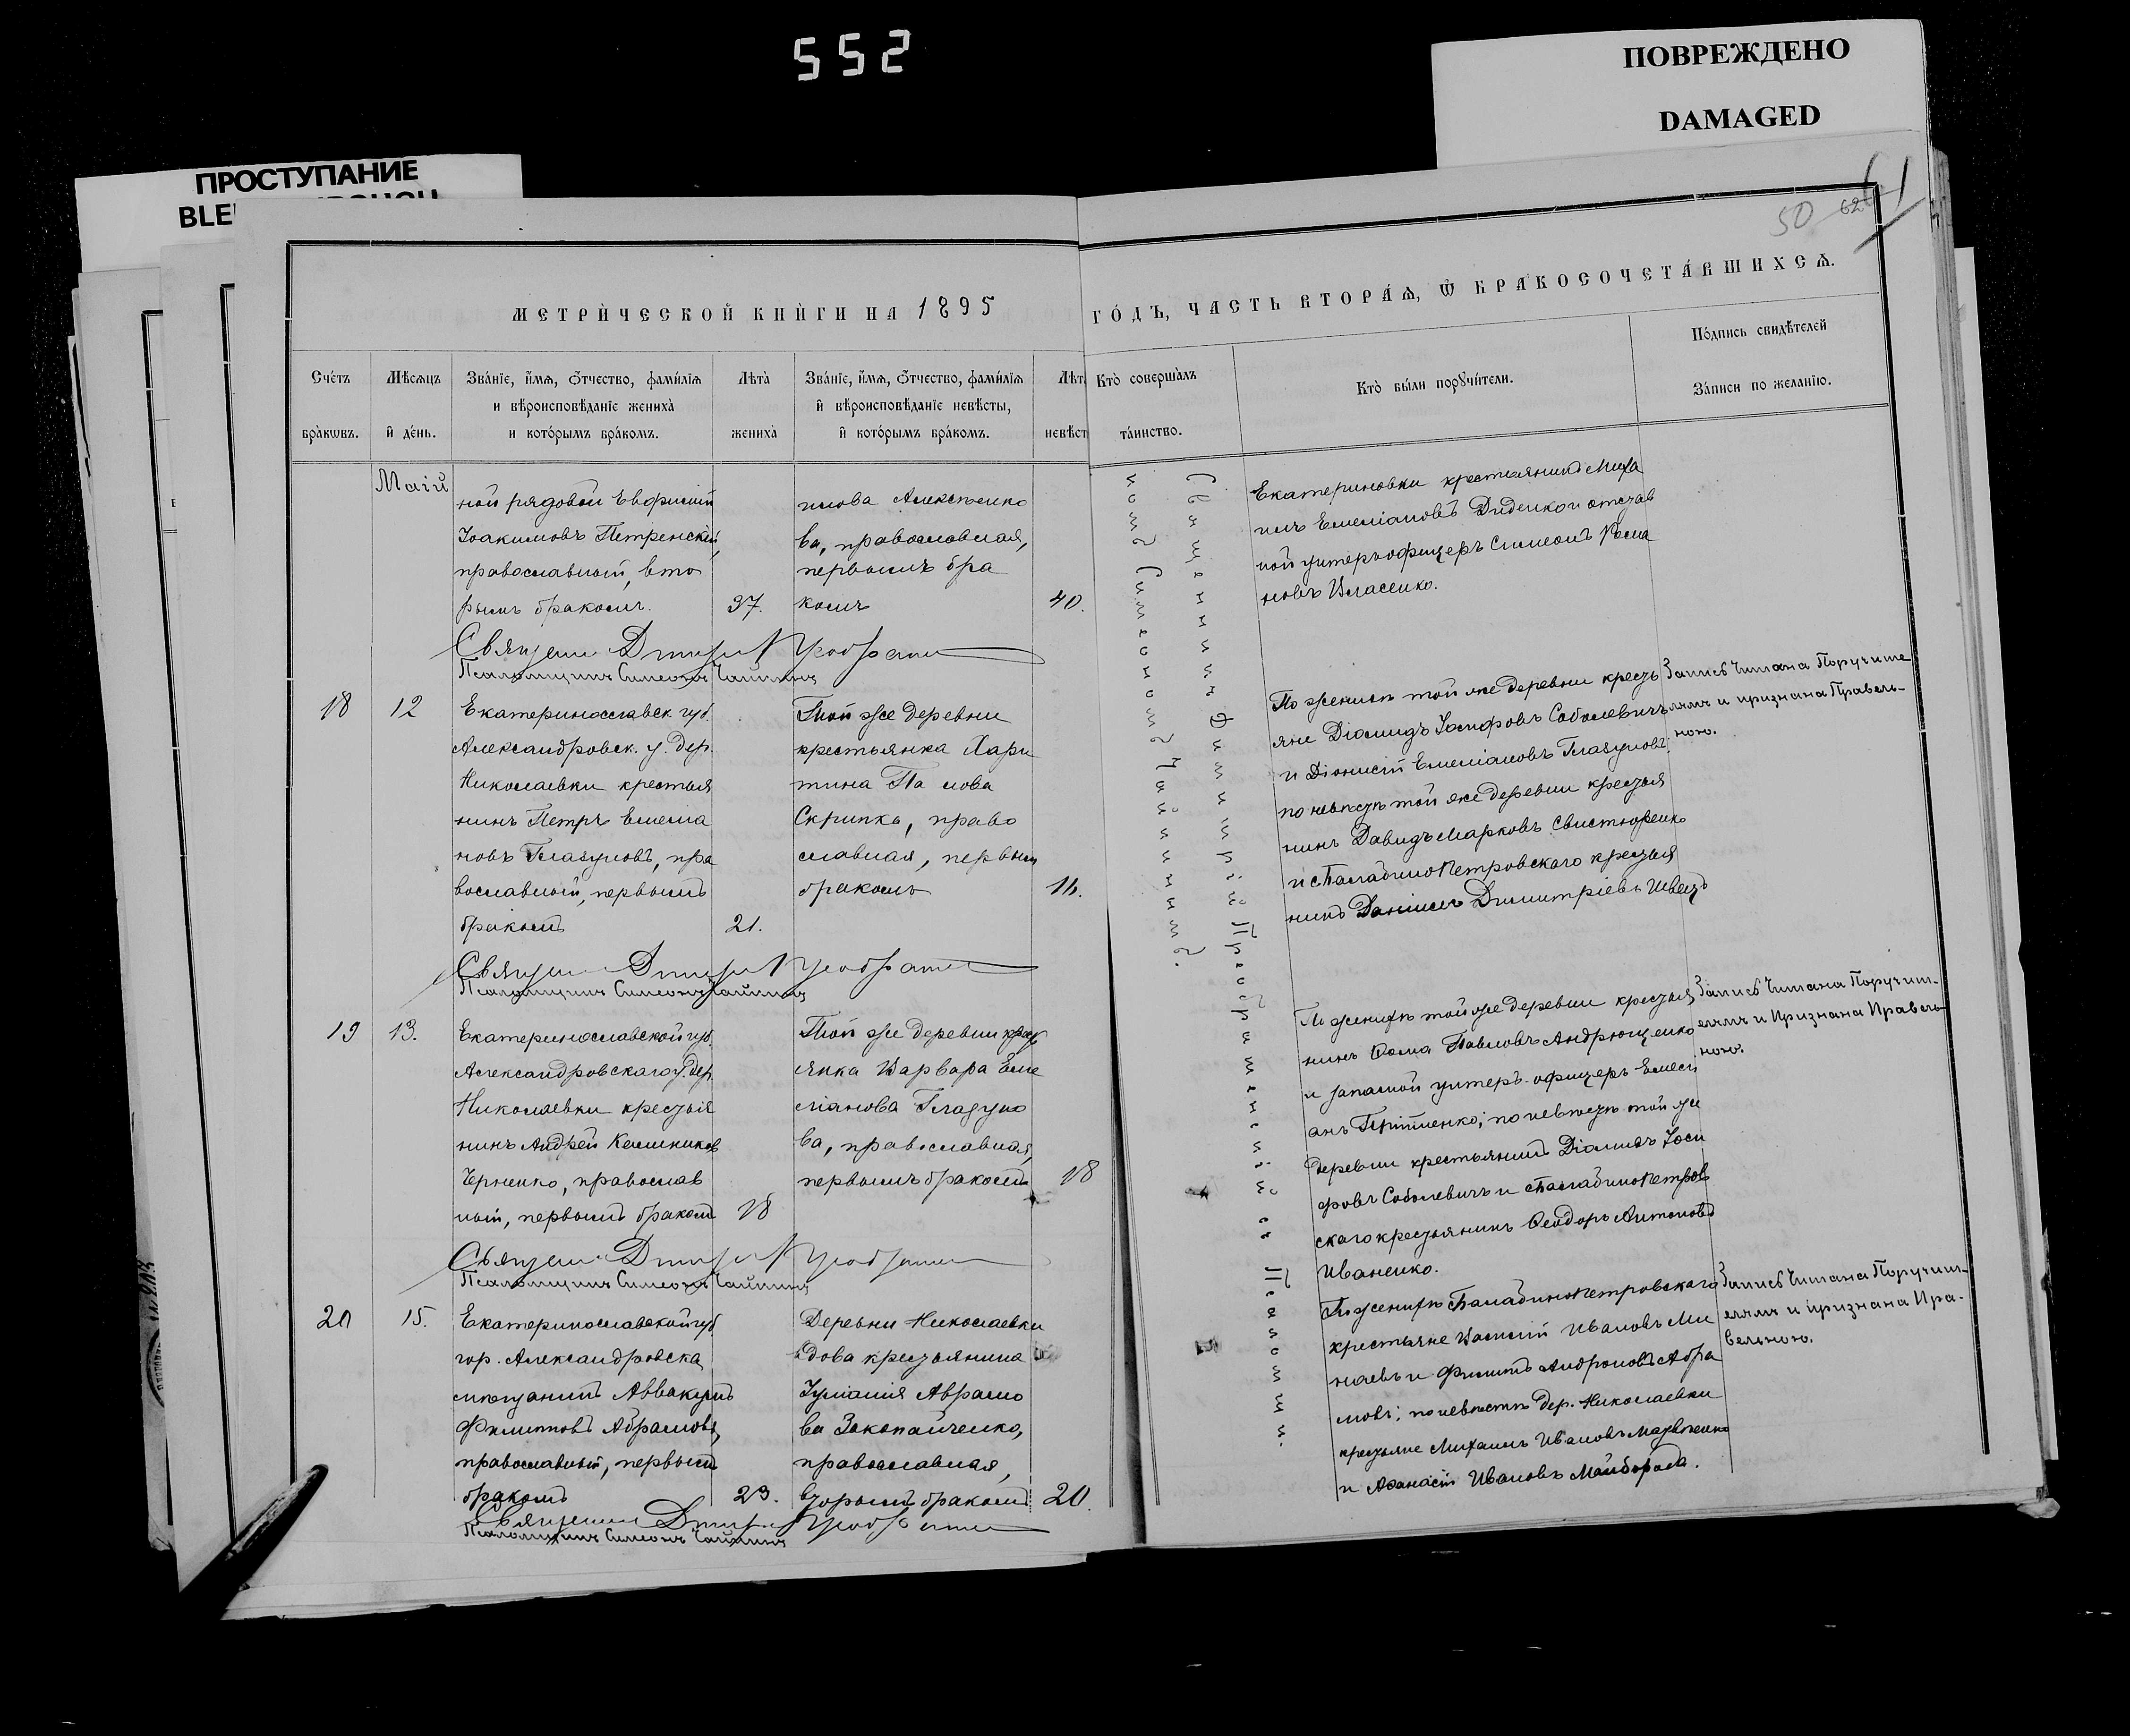 552
ПОВРЕЖДЕНО
DAMAGED
ПРОСТУПАНИЕ
50 62 61
МЕТРИ́ЧЕСКОЙ КНИ́ГИ НА 1895
ГО́ДЪ, ЧАСТЬ ВТОРА́Ѧ, Ѡ҆ БРАКОСОЧЕТА́ВШИХСѦ.
Сче́тъ бра́кѡвъ.
Мѣ́сѧцъ и҆ де́нь.
Зва́нїе, и҆́мѧ, ѻ҆́тчество, фамі́лїѧ
и вѣроисповѣ́данїе жениха̀
и кото́рымъ бра́комъ.
Лѣ́та̀ жениха̀
Зва́нїе, и҆́мѧ, ѻ҆́тчество, фамі́лїѧ
и҆ вѣроисповѣ́данїе невѣ́сты,
и҆ кото́рымъ бра́комъ.
Лѣт невѣст
Кто̀ соверша́лъ та́инство.
Кто̀ бы́ли порꙋчи́тели.
По́дпись свидѣ́телей
За́писи по жела́нїю.
Маій
ной рядовой Евфимій
Іоакимовъ Петренскій,
православный, вто
рымъ бракомъ. 37.
пова Алексѣенко
ва, православная,
первымъ бра
комъ 40.
Екатериновки крестьянинъ Миха
илъ Емеліановъ Диденко и отстав
ной унтеръ-офицеръ Симеонъ Рома
новъ Власенко.
Священникъ Димитрій Преображенскій и Псаломщикъ
Симеонъ Чайкинъ
18 12
Екатеринославск. губ.
Александровск. у. дер.
Николаевки крестья
нинъ Петръ Емелиа
новъ Глазуновъ, пра
вославный, первымъ
бракомъ 21.
Той же деревни
крестьянка Хари
тина Па лова
Скрипка, право
славная, первым
бракомъ
По женихѣ той же деревни кресть
яне Діомидъ Іосифовъ Соболевичъ
и Діонисій Емеліановъ Глазуновъ;
по невѣстѣ той же деревни крестья
нинъ Давидъ Марковъ Свистюренко
и с Баладинопетровского крестья
нинъ Даніилъ Димитріевъ Швецъ
Запись читана Поручите
лямъ и признана Правель-
ною.
19 13.
Екатеринославской губ.
Александровскаго у. дер.
Николаевки крестья
нинъ Андрей Калиниковъ
Черненко, православ
ный, первымъ бракомъ 18
Той же деревни крест
янка Варвара Еме
ліянова Глазуно
ва, православная,
первымъ бракомъ 18
По женихѣ той же деревни крестья
нинъ Ѳома Павловъ Андрющенко
и запасной унтеръ-офицеръ Емели
анъ; по невѣстѣ той же
деревни крестьянинъ Діомидъ Іоси
фовъ Соболевичъ и с Баладинопетров
скаго крестьянинъ Ѳеодоръ Антоновъ
Иваненко.
Запись читана Поручит-
елямъ и Признана Правель-
ною.
20 15.
Екатеринославской губ
гор. Александровска
мѣщанинъ Аввакумъ
Филиповъ Абрамовъ,
православный, первымъ
бракомъ 23.
Деревни Николаевки
вдова крестьянина
Іуліанія Аврамо
ва Закопайченко,
православная,
вторымъ бракомъ 20.
По женихѣ с Баладинопетровскаго
крестьяне Василій Ивановъ Ми
наевъ и Филипъ Андроновъ Абра
мовъ; по невѣстѣ дер. Николаевки
крестьяне Михаилъ Ивановъ
и Аѳанасій Ивановъ Майборода.
Запись читана Поручит-
елямъ и признана Пра-
вельною.
Псаломщикъ Симеонъ Чайкинъ